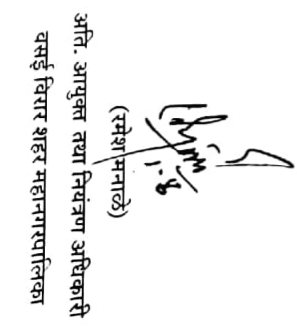 1.8
(रमेश मनाले)
अति. आयुक्त तथा नियंत्रण अधिकारी
वसई विरार शहर महानगरपालिका